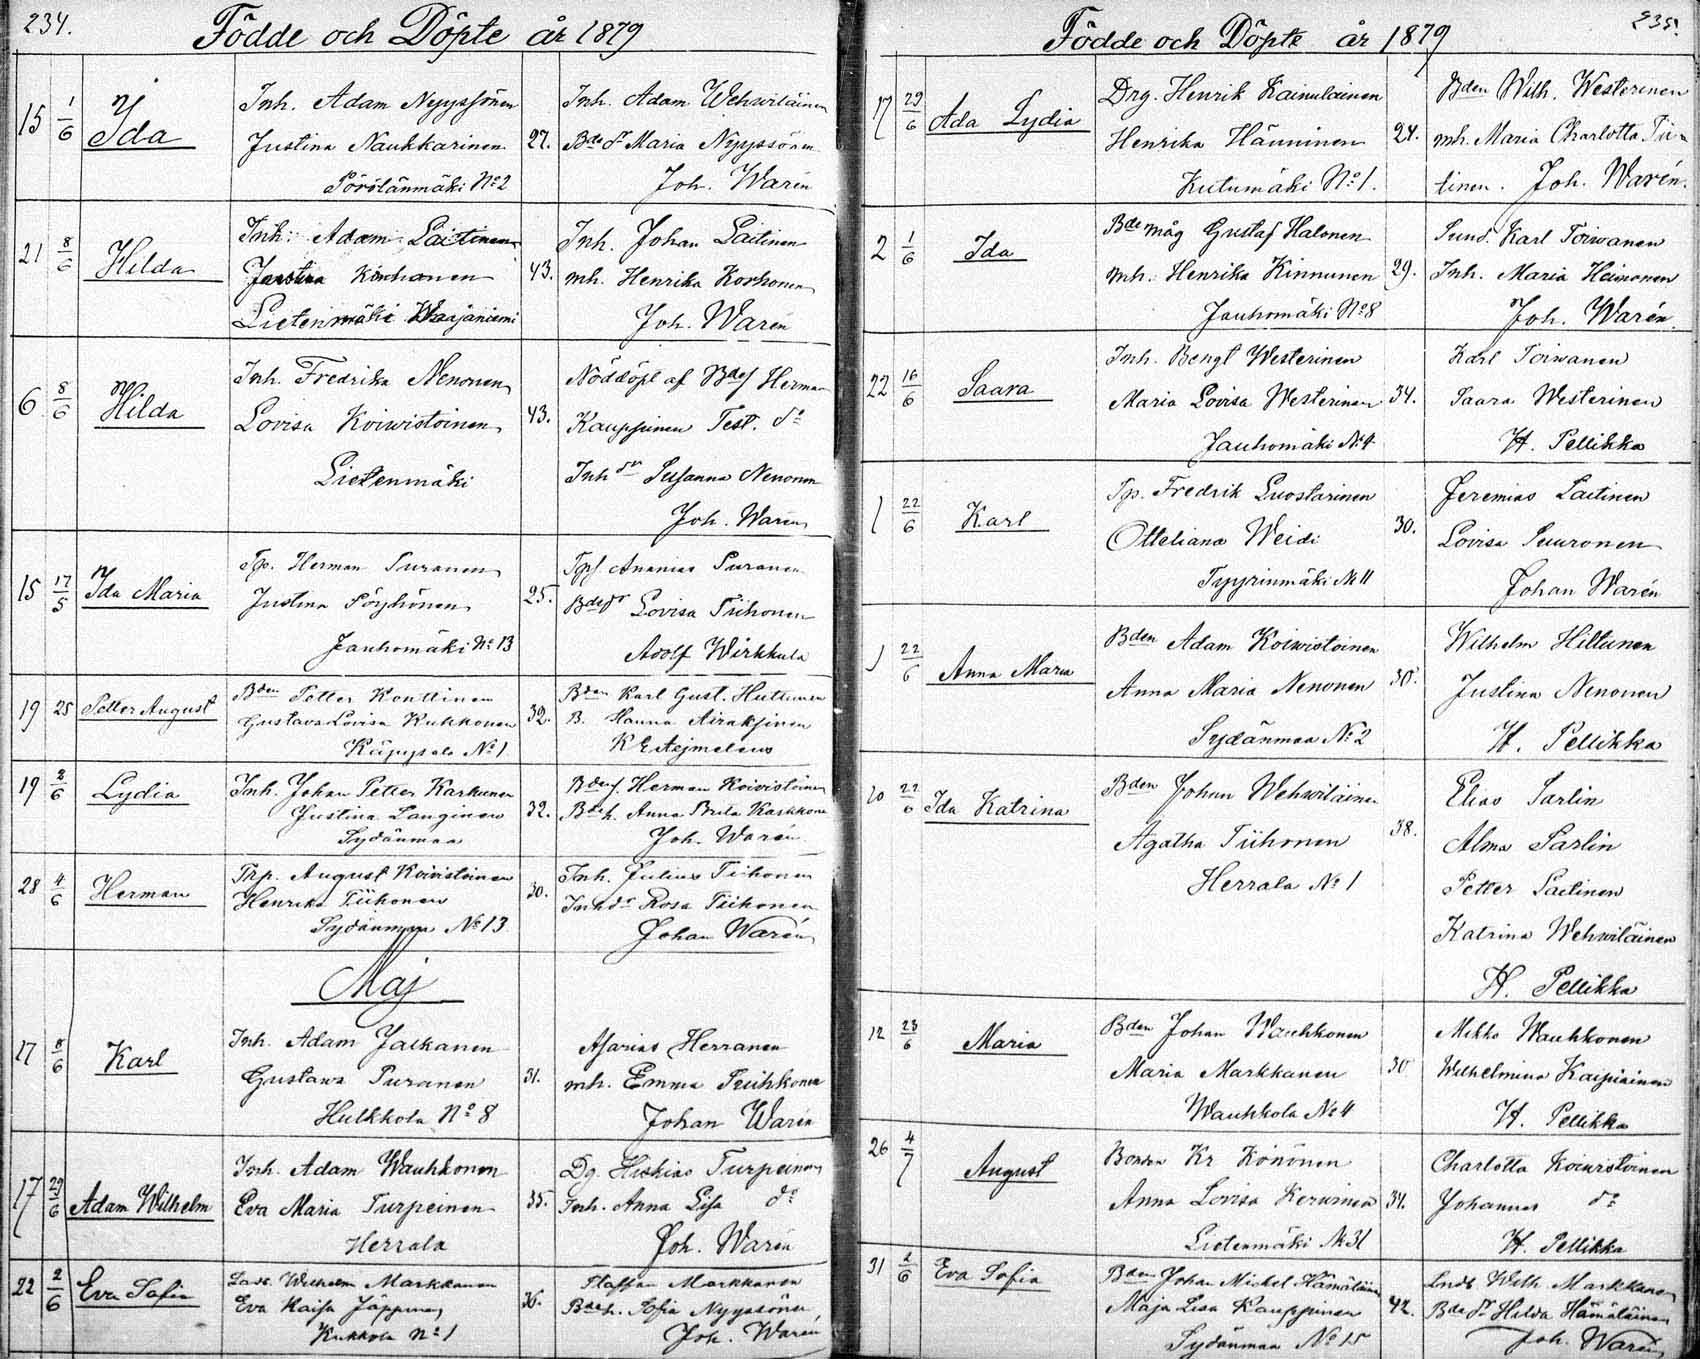 234.
Födde och Döpte år 1879
15 1/6 Ida
Inh. Adam Nyyssönen
Justina Naukkarinen 27.
Pörölänmäki No 2
Inh. Adam Wehwiläinen
Bde dr Maria Nyyssönen
Joh. Warén
21 8/6 Hilda
Inh. Adam Laitinen
Justina Korhonen 43.
Lietenmäki Waajaniemi
Inh. Johan Laitinen
mh. Henrika Korhonen
Joh. Warén
6 8/6 Hilda
Inh. Fredrika Nenonen
Lovisa Koiwistoinen 43.
Lietenmäki
Nöddöpt af Bdes Herman
Kauppinen Test. do
Inh dr Susanna Nenonen
Joh. Warén
15 17/5 Ida Maria
Tp. Herman Puranen
Justina Pöyhönen 25.
Jauhomäki No 13
Tps Ananias Puranen
Bde dr Lovisa Tiihonen
Adolf Wirkkula
19 25 Petter August
Bden Petter Konttinen
Gustava Lovisa Kukkonen 32.
Käpysalo No 1
Bden Karl Gust. Huttunen
B. Hanna Airaksinen
K Ertejmeleus
19 2/6 Lydia
Inh. Johan Petter Karkunen
Justina Langinen 32.
Sydänmaa
Bdes. Herman Koivistoinen
Bde h. Anna Brita Kaskkonen
Joh. Warén
28 4/6 Herman
Trp. August Koivistoinen
Henrika Tiihonen 30.
Sydänmaa No 13
Inh. Julius Tiihonen
Inh dr Rosa Tiihonen
Johan Warén
Maj
17 8/6 Karl
Inh. Adam Jalkanen
Gustawa Puranen 31.
Hulkkola No 8
Asarias Herranen
mh. Emma Puihkonen
Johan Warén
17 29/6 Adam Wilhelm
Inh. Adam Wauhkonen
Eva Maria Turpeinen 35.
Herrala
Dg. Hiskias Turpeinen
Inh. Anna Lisa do
Joh. Warén
22 2/6 Eva Sofia
Wilhelm Markkanen
Eva Kaisa Jäppinen 36.
Kukkola No 1
Staffan Markkanen
Bde h. Sofia Nyyssönen
Joh. Warén
235.
Födde och Döpte år 1879
17 29/6 Ada Lydia
Drg. Henrik Kainulainen
Henrika Hänninen 24.
Kutumäki No 1.
Bden Wilh. Westerinen
mh. Maria Charlotta Pu-
tinen. Joh. Warén.
2 1/6 Ida
Bde måg Gustaf Halonen
mh. Henrika Kinnunen 29.
Jauhomäki No 8
Karl Toiwanen
Inh. Maria Heinonen
Joh. Warén
22 16/6 Saara
Inh. Bengt Westerinen
Maria Lovisa Westerinen 34.
Jauhomäki No 4
Karl Toiwanen
Saara Westerinen
H. Pellikka
1 22/6 Karl
Tp. Fredrik Luostarinen
Otteliana Weidi 30.
Tyyrinmäki No 11
Jeremias Laitinen
Lovisa Suuronen
Johan Warén
1 22/6 Anna Maria
Bden Adam Koiwistoinen
Anna Maria Nenonen 30.
Sydänmaa No 2
Wilhelm Hiltunen
Justina Nenonen
H. Pellikka
10 22/6 Ida Katrina
Bden Johan Wehwiläinen
Agatha Tiihonen 38.
Herrala No 1
Elias Sarlin
Alma Sarlin
Petter Laitinen
Katrina Wehwiläinen
H. Pellikka
12 23/6 Maria
Bden Johan Wauhkonen
Maria Markkanen 30
Wauhkola No 4
Mikko Wauhkonen
Wilhelmina Kaipiainen
H. Pellikka
26 4/7 August
Bonden Kr Könönen
Anna Lovisa Kerwinen 31.
Lietenmäki No 31
Charlotta Koiwistoinen
Johannes do
H. Pellikka
31 2/6 Eva Sofia
Bden Johan Mickel Hämäläinen
Maja Lisa Kauppinen 42.
Sydänmaa No 15
Wilh. Markkanen
Bde dr Hilda Hämäläinen
Joh. Warén